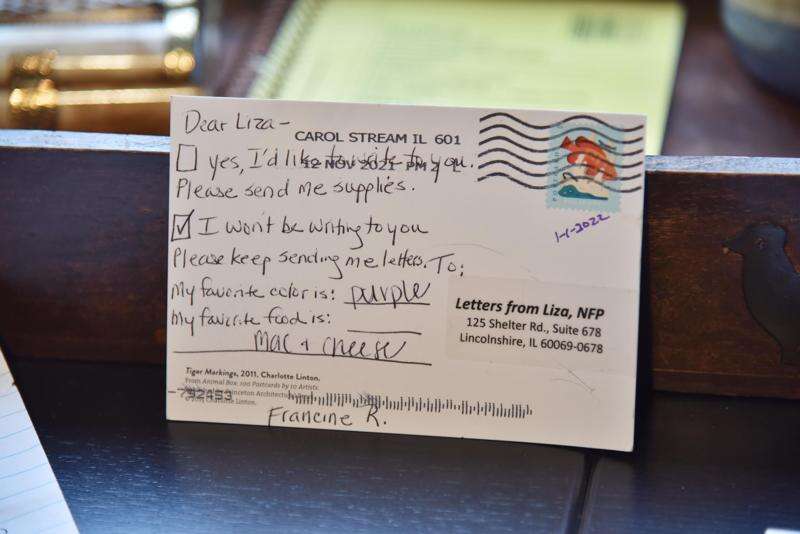 Dear Liza-
CAROL STREAM IL 601
12 NOV 2021 PM 2 L
yes, I'd like to write to you.
Please send me supplies.
I won't be writing to you
Please keep sending me letters. To:
My favorite color is: purple
My favorite food is:
Mac + cheese
1-1-2022
Letters from Liza, NFP
125 Shelter Rd., Suite 678
Lincolnshire, IL 60069-0678
Tiger Markings, 2011, Charlotte Linton.
From Animal Box: 100 Postcards by 10 Artists
Princeton Architec
Linton.
Francine R.